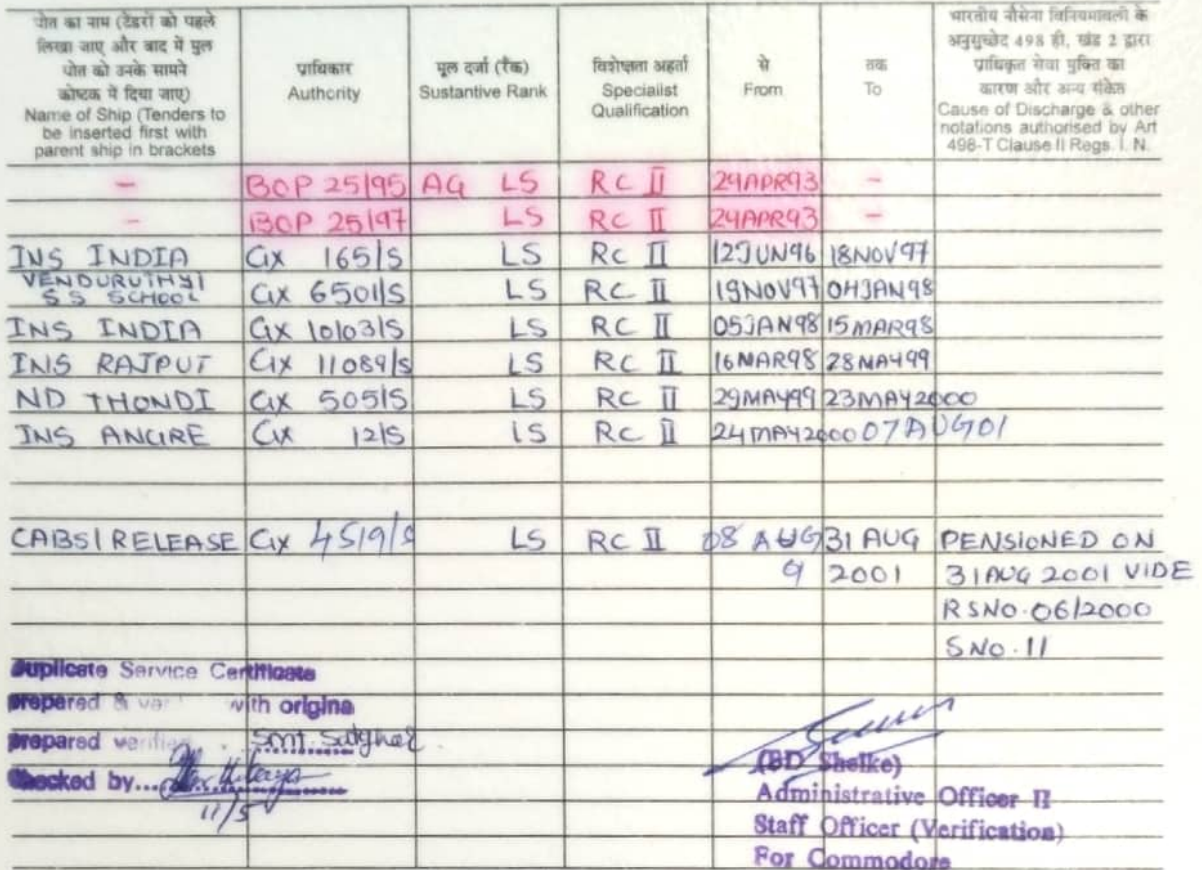 पोत का नाम (टेंडरों को पहले
लिखा जाए और बाद में मुल
पोत को उनके सामने
कोष्टक में दिया जाए)
Name of Ship (Tenders to
be inserted first with
parent ship in brackets
प्राधिकार
Authority
मूल दर्जा (रैंक)
Sustantive Rank
विशेषता अहर्ता
Specialist
Qualification
से
From
तक
To
भारतीय नौसेना विनियमावली के
अनुसुच्छेद 498 ही, खंड 2 द्वारा
प्राधिकृत सेवा मुक्ति का
कारण और अन्य संकेत
Cause of Discharge & other
notations authorised by Art
498-T Clause II Regs. I. N.
- BOP 25/95 AG LS RC II 24APR93 -
- BOP 25/97 LS RC II 24APR93 -
INS INDIA GX 165/S LS RC II 12JUN96 18NOV97
VENDURUTHYI
S S SCHOOL GX 6501/S LS RC II 19NOV97 04JAN98
INS INDIA GX 10103/S LS RC II 05JAN98 15MAR98
INS RAJPUT GX 11089/S LS RC II 16MAR98 28MAY99
ND THONDI GX 505/S LS RC II 29MAY99 23MAY2000
INS ANGRE GX 12/S LS RC II 24MAY2000 07AUG01
CABS/RELEASE GX 4519/S LS RC II 08 AUG 31 AUG PENSIONED ON
2001 31AUG 2001 VIDE
RSNO.06/2000
SNO.11
Duplicate Service Certificate
prepared & with origina
prepared Smt.
Checked by...
11/5
(BD Shelke)
Administrative Officer II
Staff Officer (Verification)
For Commodore